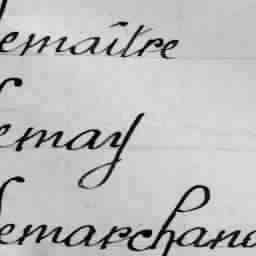 emaître
emay
emarchand